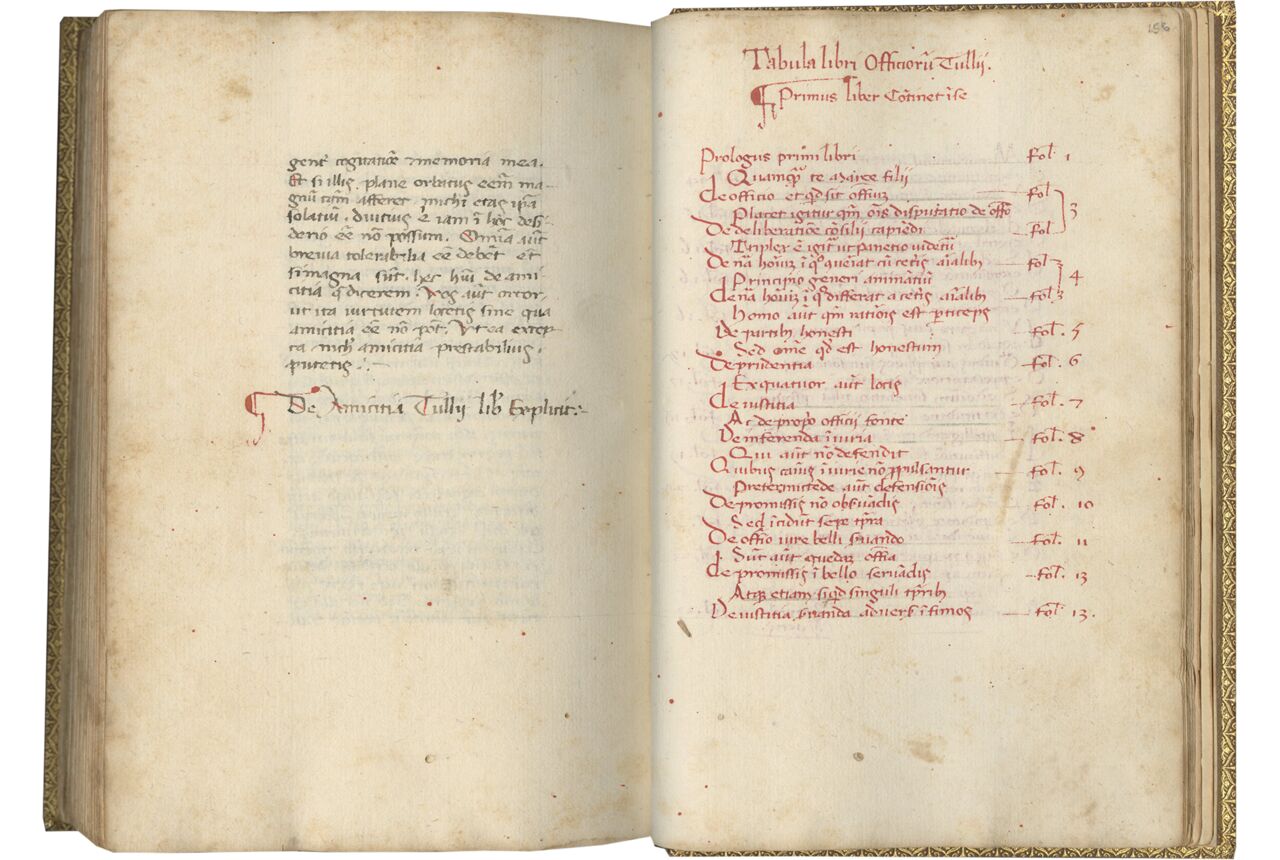 gent̃ cogitatiõe ⁊ memoria mea.
Et si illis plane orbatus eẽm ma-
gnũ tam̃ afferret michi etas ip̃a
solatiũ. diutius ẽ iam ĩ hoc desi-
derio eẽ nõ possum. Omĩa aut̃
brevia tolerabilia eẽ debẽt et
si magna sũt. hec hũi de ami-
citia q̃ dicerem. Vos aut̃ ortor
ut ita virtutem locetis sine qua
amicitia eẽ nõ põt. Ut ea excep-
ta nich' amicitia prestabilius
putetis.
De Amicitia Tullii lib' Explicit:-
158
Tabula libri Officiorũ Tullii.
Primus liber Cõtinet ĩ se
Prologus primi libri Fol. 1
Quamqȝ te Marce filii
De officio et qd sit offitiũ Fol
Placet igitur qm̃ oĩs disputatio de offõ 3
De deliberatiõe cõsilii capiẽdi Fol
Tripler ẽ igit̃ ut panetio videtũ
De nã hoĩuȝ ĩ qo queniat cũ cetis aĩalib Fol
Principio generi animãtiũ 4
De nã hoĩuȝ ĩ qo differat a cetis aĩalib Fol.
Homo aut̃ qm̃ rationis est particeps
De partib honesti Fol. 5
Sed omẽ qd est honestum
De prudentia Fol. 6
Ex quatuor aut̃ locis
De iustitia Fol. 7
Ac de propo officii fonte
De inferenda iniuria Fol. 8
Qui aut̃ nõ defendit
Quibus causis iniurie nõ ppulsantur Fol. 9
Pretermittẽde aut̃ defensiõis
De promissis nõ obsuãdis Fol. 10
Sed ĩcidũt sepe tp̃ra
De offõ iure belli suando Fol. 11
Sũt aut̃ quedaȝ offĩa
De promissis ĩ bello servãdis Fol. 13
Atqȝ etiam siqd singuli tp̃rib
De iustitia suanda adversȝ ĩfimos Fol. 13.